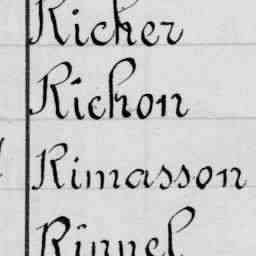 Richer
Richon
Rimasson
Rinnel